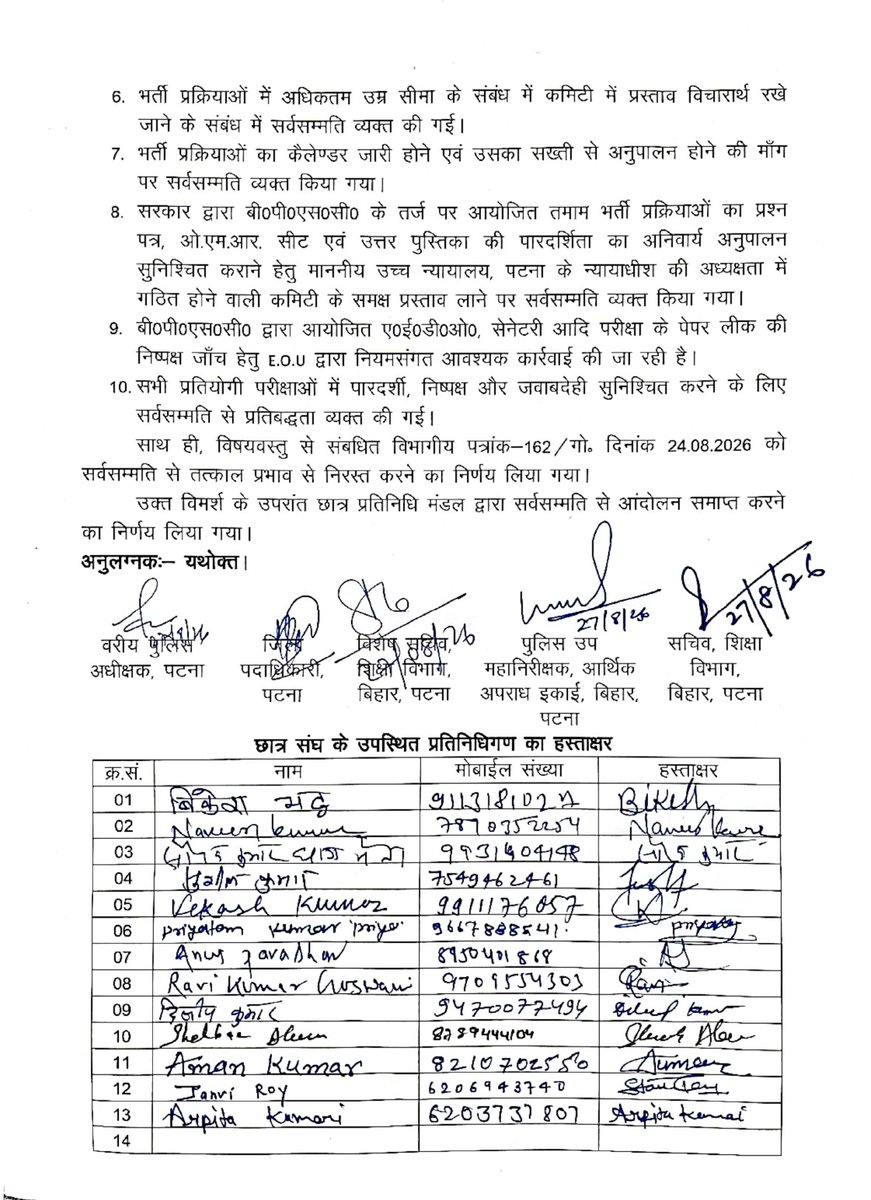 6. भर्ती प्रक्रियाओं में अधिकतम उम्र सीमा के संबंध में कमिटी में प्रस्ताव विचारार्थ रखे
जाने के संबंध में सर्वसम्मति व्यक्त की गई।
7. भर्ती प्रक्रियाओं का कैलेण्डर जारी होने एवं उसका सख्ती से अनुपालन होने की माँग
पर सर्वसम्मति व्यक्त किया गया।
8. सरकार द्वारा बी0पी0एस0सी0 के तर्ज पर आयोजित तमाम भर्ती प्रक्रियाओं का प्रश्न
पत्र, ओ.एम.आर. सीट एवं उत्तर पुस्तिका की पारदर्शिता का अनिवार्य अनुपालन
सुनिश्चित कराने हेतु माननीय उच्च न्यायालय, पटना के न्यायाधीश की अध्यक्षता में
गठित होने वाली कमिटी के समक्ष प्रस्ताव लाने पर सर्वसम्मति व्यक्त किया गया।
9. बी0पी0एस0सी0 द्वारा आयोजित ए0ई0डी0ओ0, सेनेटरी आदि परीक्षा के पेपर लीक की
निष्पक्ष जाँच हेतु E.O.U द्वारा नियमसंगत आवश्यक कार्रवाई की जा रही है।
10. सभी प्रतियोगी परीक्षाओं में पारदर्शी, निष्पक्ष और जवाबदेही सुनिश्चित करने के लिए
सर्वसम्मति से प्रतिबद्धता व्यक्त की गई।
साथ ही, विषयवस्तु से संबधित विभागीय पत्रांक–162/गो० दिनांक 24.08.2026 को
सर्वसम्मति से तत्काल प्रभाव से निरस्त करने का निर्णय लिया गया।
उक्त विमर्श के उपरांत छात्र प्रतिनिधि मंडल द्वारा सर्वसम्मति से आंदोलन समाप्त करने
का निर्णय लिया गया।
अनुलग्नकः– यथोक्त।
27/8/26 27/8/26
वरीय पुलिस जिला विशेष सचिव, पुलिस उप सचिव, शिक्षा
अधीक्षक, पटना पदाधिकारी, शिक्षा विभाग, महानिरीक्षक, आर्थिक विभाग,
पटना बिहार, पटना अपराध इकाई, बिहार, बिहार, पटना
पटना
छात्र संघ के उपस्थित प्रतिनिधिगण का हस्ताक्षर
क्र.सं. नाम मोबाईल संख्या हस्ताक्षर
01 Bikesh
02 Naveen Kumar 7870352254
03 कुमार 9931404148
04 कुमार 7549462461
05 Vekash Kumar 9911176057
06 Priyatam Kumar Priya 9667888541
07 8950401868
08 Ravi Kumar Goswami 9709554303 Ravi
09 दिलीप कुमार 9470077494
10 8789444104
11 Aman Kumar 8210702550
12 Janvi Roy 6206943740
13 Arpita Kumari 6203737807 Arpita Kumari
14